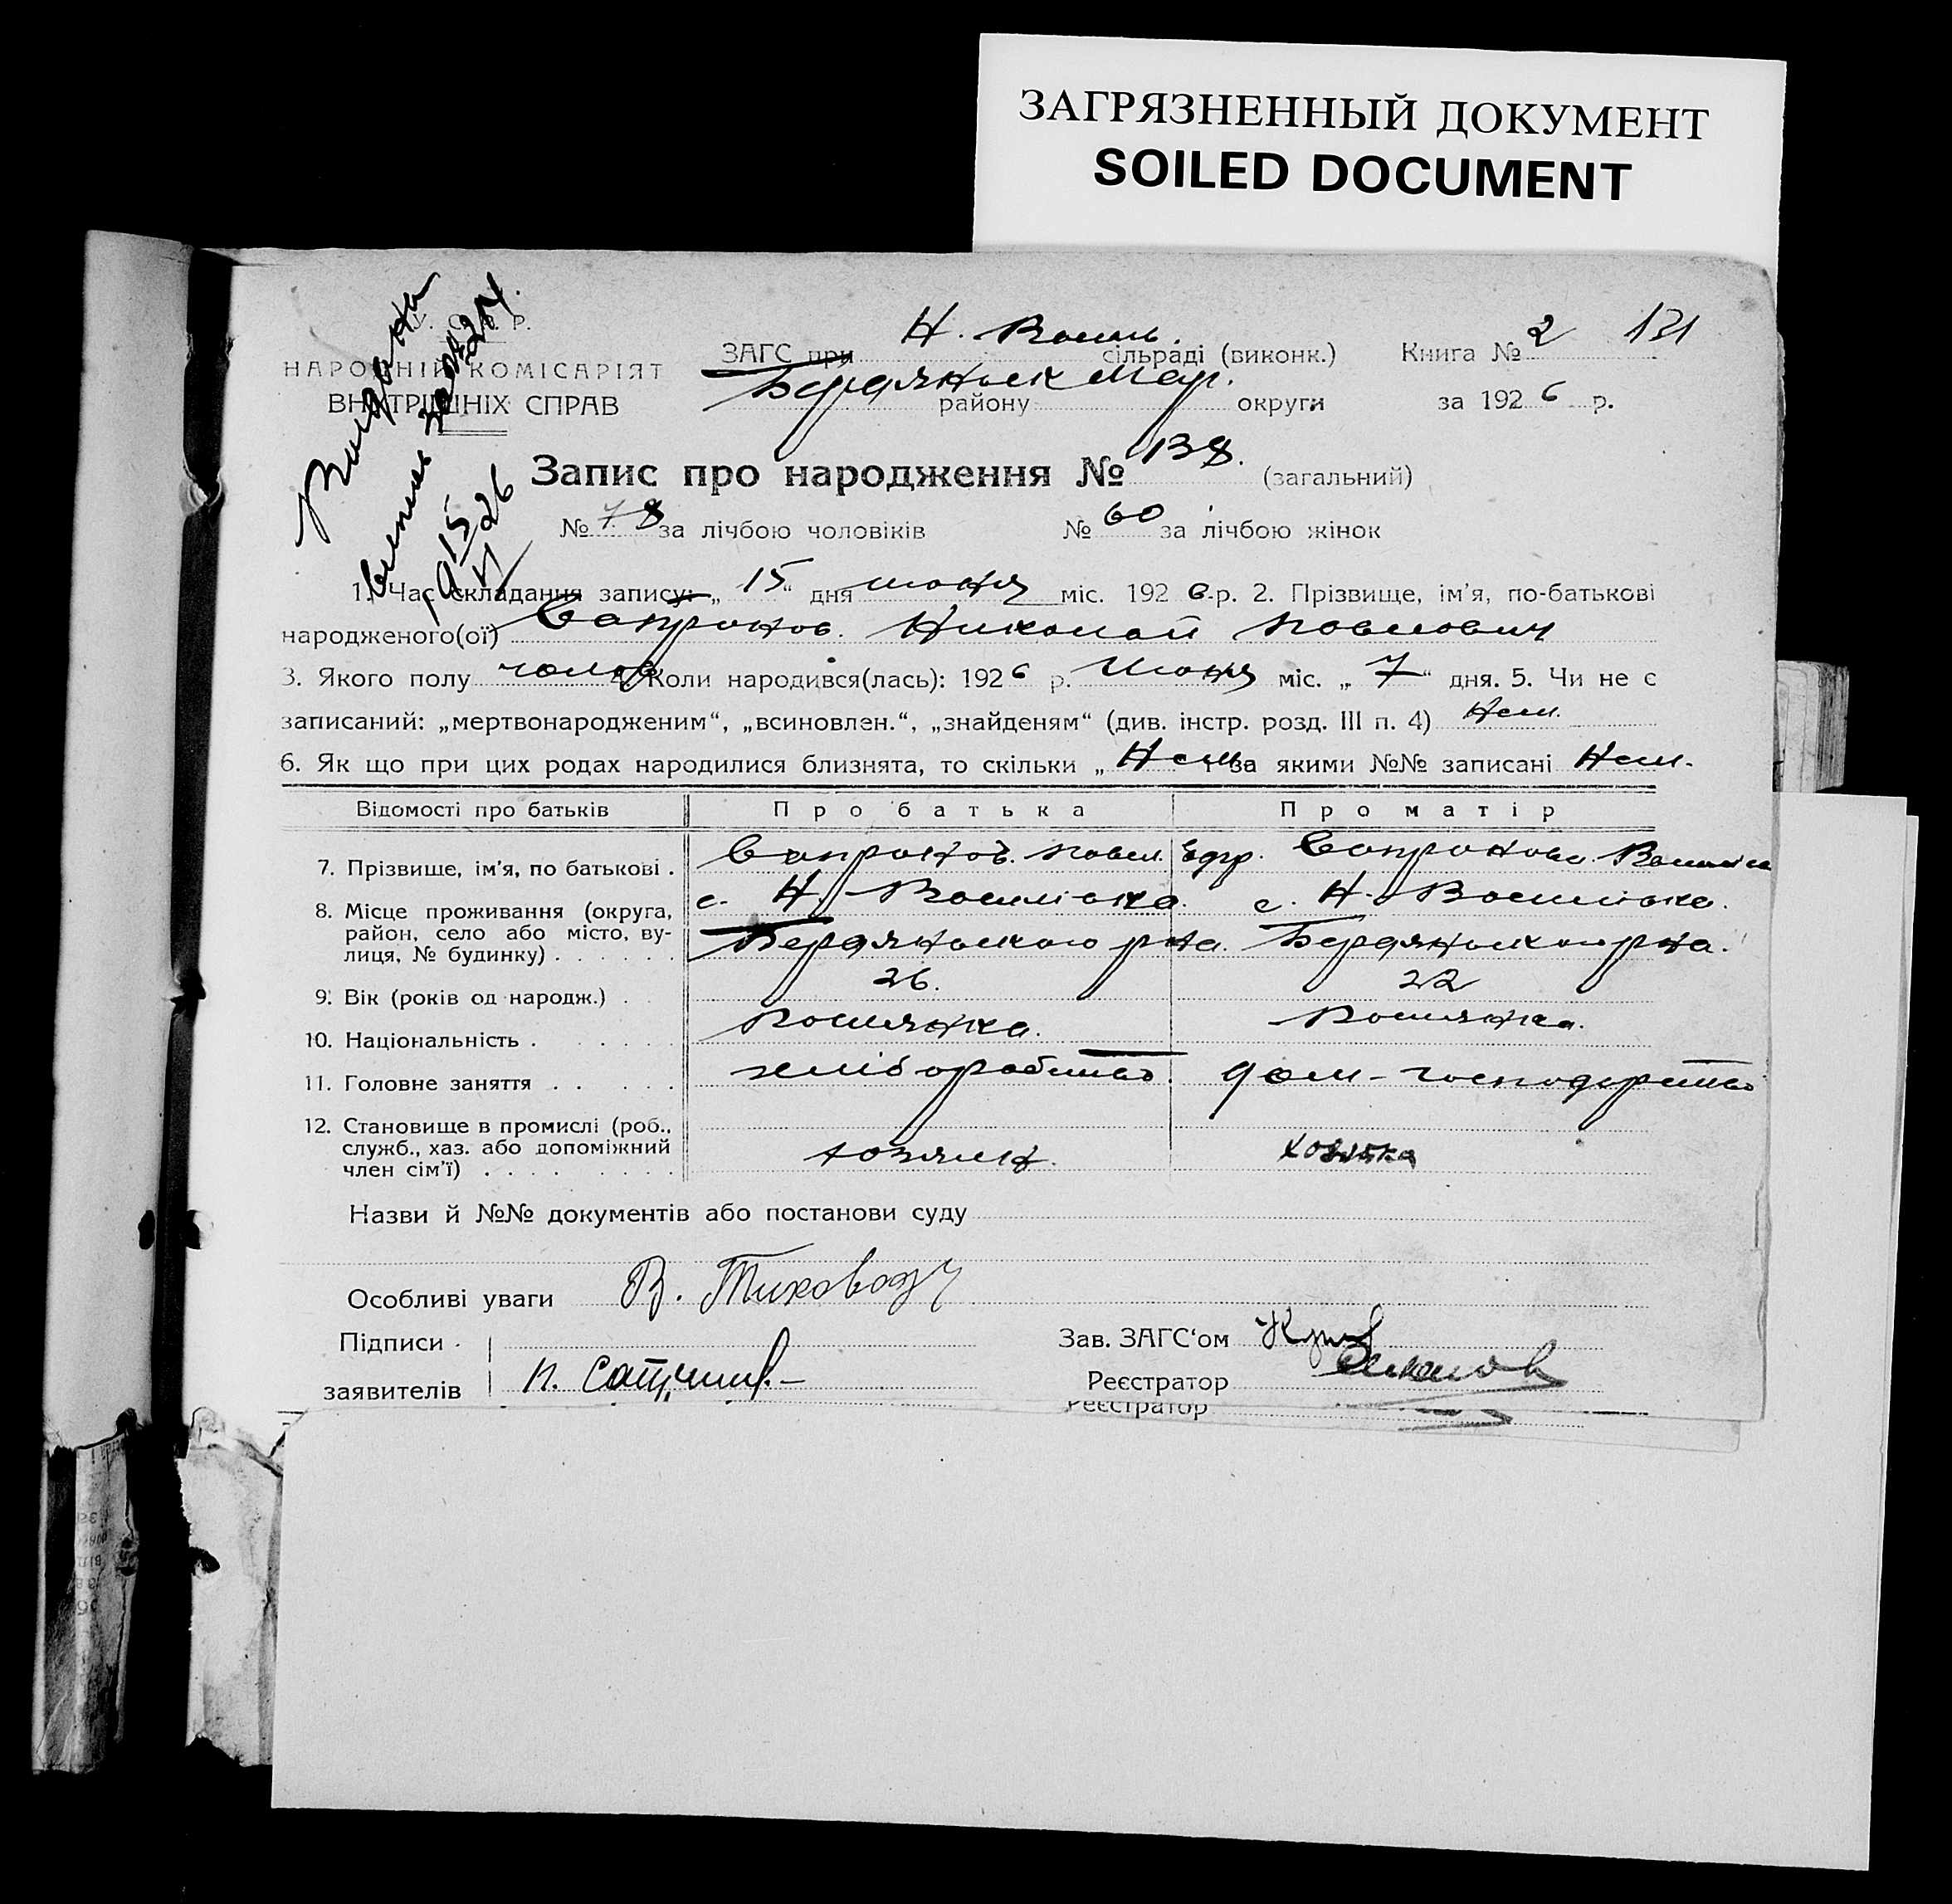 ЗАГРЯЗНЕННЫЙ ДОКУМЕНТ
SOILED DOCUMENT
У. С. Р. Р.
НАРОДНІЙ КОМІСАРІЯТ
ВНУТРІШНІХ СПРАВ
Видана
ЗАГС при Н. Васил. сільраді (виконк.) Книга № 2 131
Бердянськ Мар. району округи за 1926 р.
Запис про народження № 138. (загальний)
№ 78 за лічбою чоловіків № 60 за лічбою жінок
1. Час складання запису: „15“ дня июня міс. 1926 р. 2. Прізвище, ім'я, по-батькові
народженого(ої) Сапронов. Николай Павлович
3. Якого полу чолов 4. Коли народився(лась): 1926 р. Июня міс. „7“ дня. 5. Чи не є
записаний: „мертвонародженим“, „всиновлен.“, „знайденям“ (див. інстр. розд. III п. 4) Нет.
6. Як що при цих родах народилися близнята, то скільки „Нет і за якими №№ записані Нет.
Відомості про батьків Про батька Про матір
7. Прізвище, ім'я, по батькові . Сапронов. Павел. Сапронова.
8. Місце проживання (округа, с. Н. Василівка. с. Н. Василівка.
район, село або місто, ву-
лиця, № будинку) . . . . . . Бердянського р-на. Бердянського р-на.
9. Вік (років од народж.) . 26. 22
10. Національність . . . . . . Росиянка. Росиянка.
11. Головне заняття . . . . . хліборобство. дом-господарство
12. Становище в промислі (роб.,
служб., хаз. або допоміжний хозяин. хозяйка
член сім'ї) . . . . . .
Назви й №№ документів або постанови суду
Особливі уваги В.
Підписи Зав. ЗАГС'ом
заявителів П. Реєстратор
Реєстратор